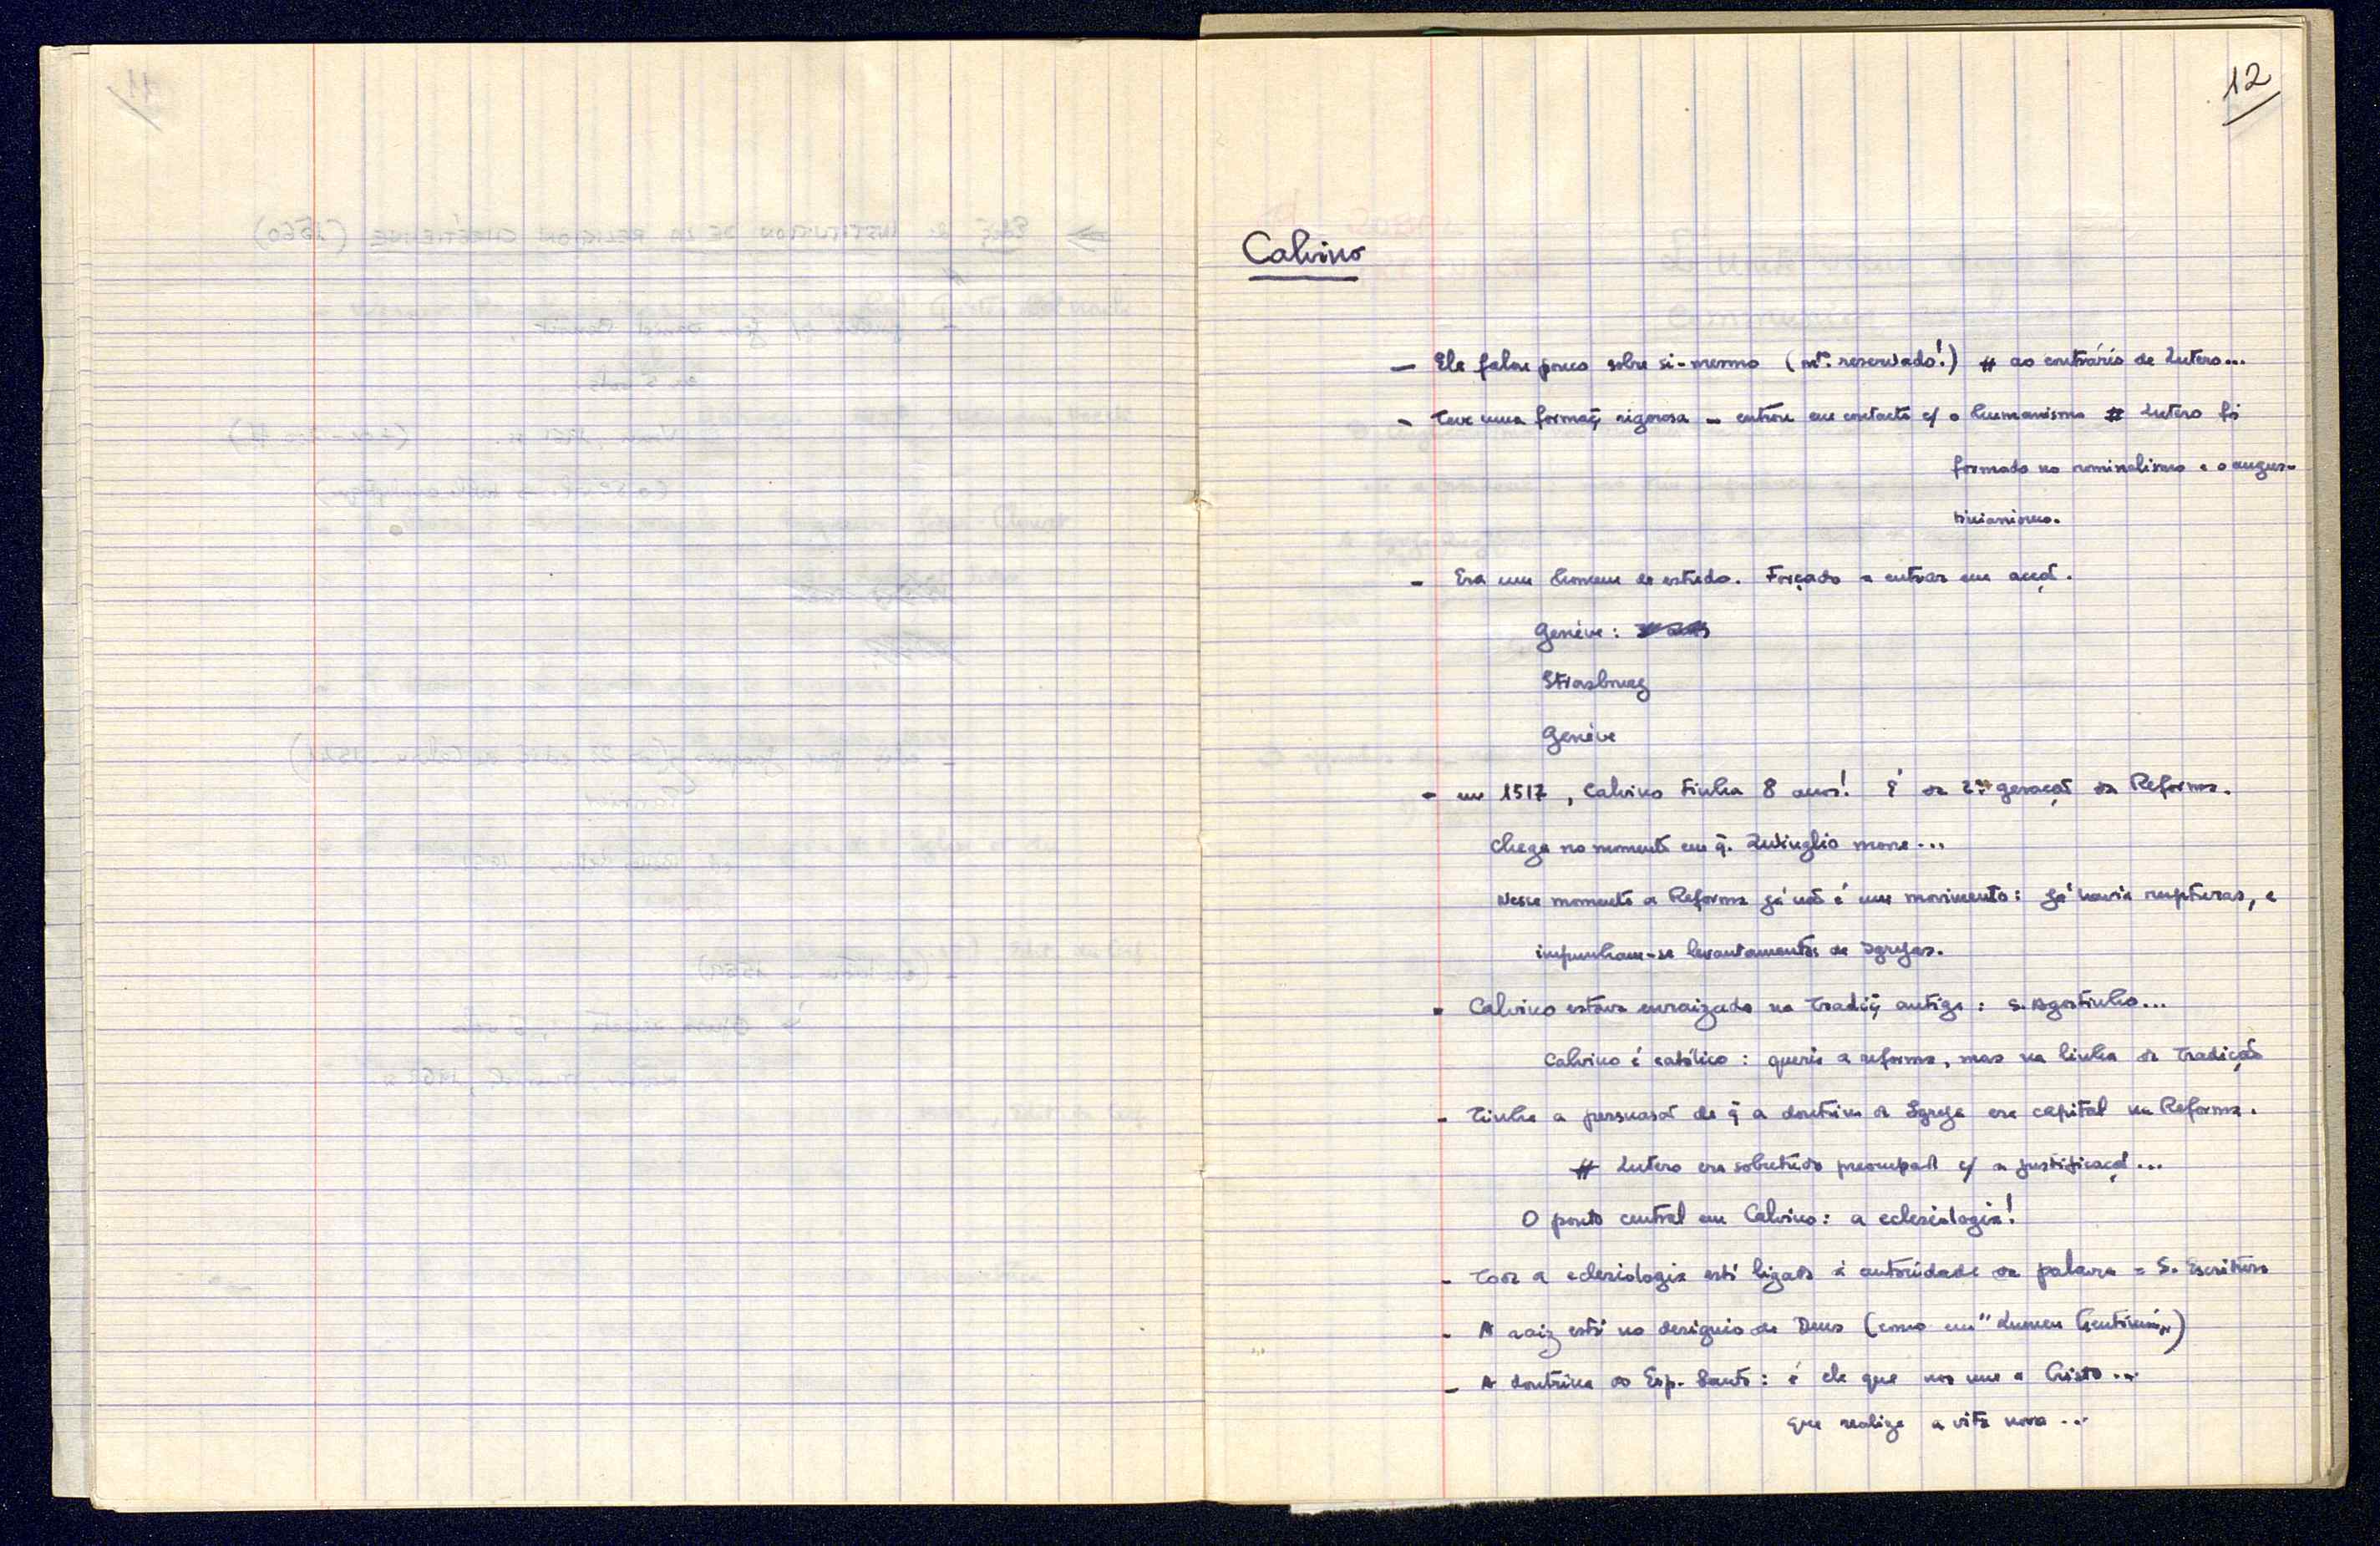 12
Calvino
– Ele falou pouco sobre si-mesmo (mto. reservado!) # ao contrário de Lutero...
– Teve uma formaç̃ rigorosa – entrou em contacto c/ o humanismo # Lutero foi
formado no nominalismo e o augus-
tinianismo.
– Era um homem de estudo. Forçado a entrar em acçã.
Genève:
Strasbourg
Genève
– em 1517, Calvino tinha 8 anos! É da 2ª geraçaõ da Reforma.
Chega no momento em q̃. Zwinglio morre...
Nesse momento a Reforma já não é um movimento: já havia rupturas, e
impunham-se levantamentos de Igrejas.
– Calvino estava enraizado na tradiç̃ antiga: S. Agostinho...
Calvino é católico: queria a reforma, mas na linha da tradição
– Tinha a persuasã de q̃ a doutrina da Igreja era capital na Reforma.
# Lutero era sobretudo preocupado c/ a justificaçã...
O ponto central em Calvino: a eclesiologia!
– Toda a eclesiologia está ligada à autoridade da palavra = S. Escritura
– A raiz está no desígnio de Deus (como em "Lumen Gentium")
– A doutrina do Esp. Santo: é ele que nos une a Cristo...
que realiza a vida nova...